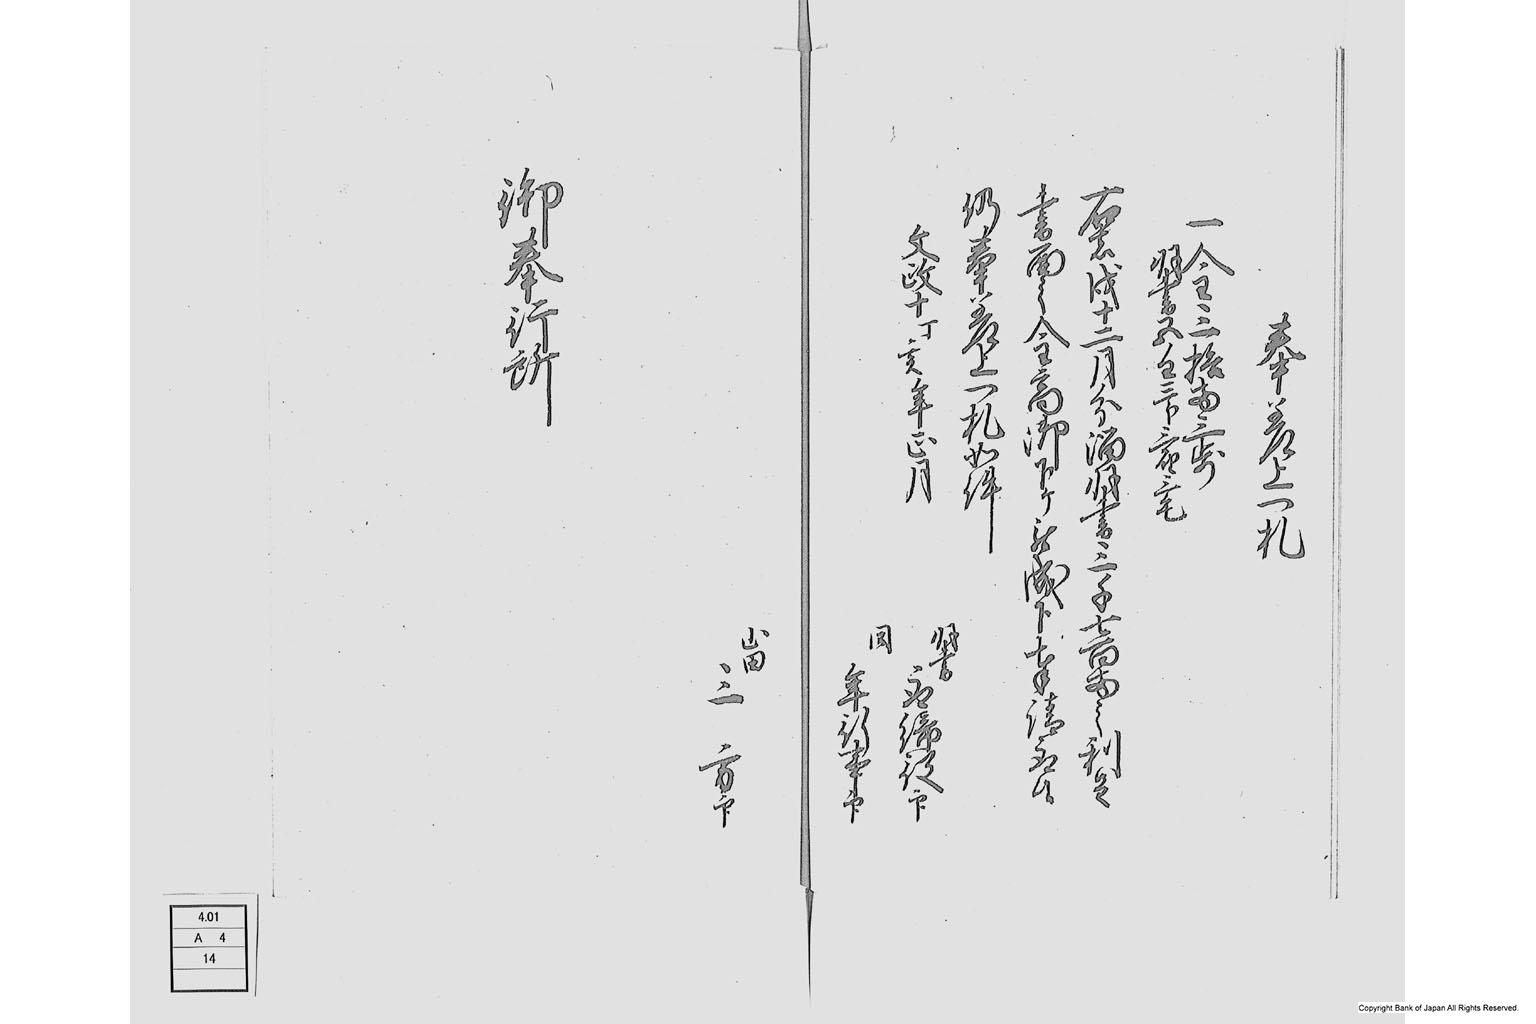 奉差上一札
一金三拾両三歩
羽書五匁三分三厘三毛
右者去戌十二月分溜羽書三千七百両之利足
書面之金高御下ケ被成下奉請取候
仍奉差上一札如件
文政十丁亥年正月
羽書
取締役印
同
年行事印
山田
三方印
御奉行所
4.01
A 4
14
Copyright Bank of Japan All Rights Reserved.